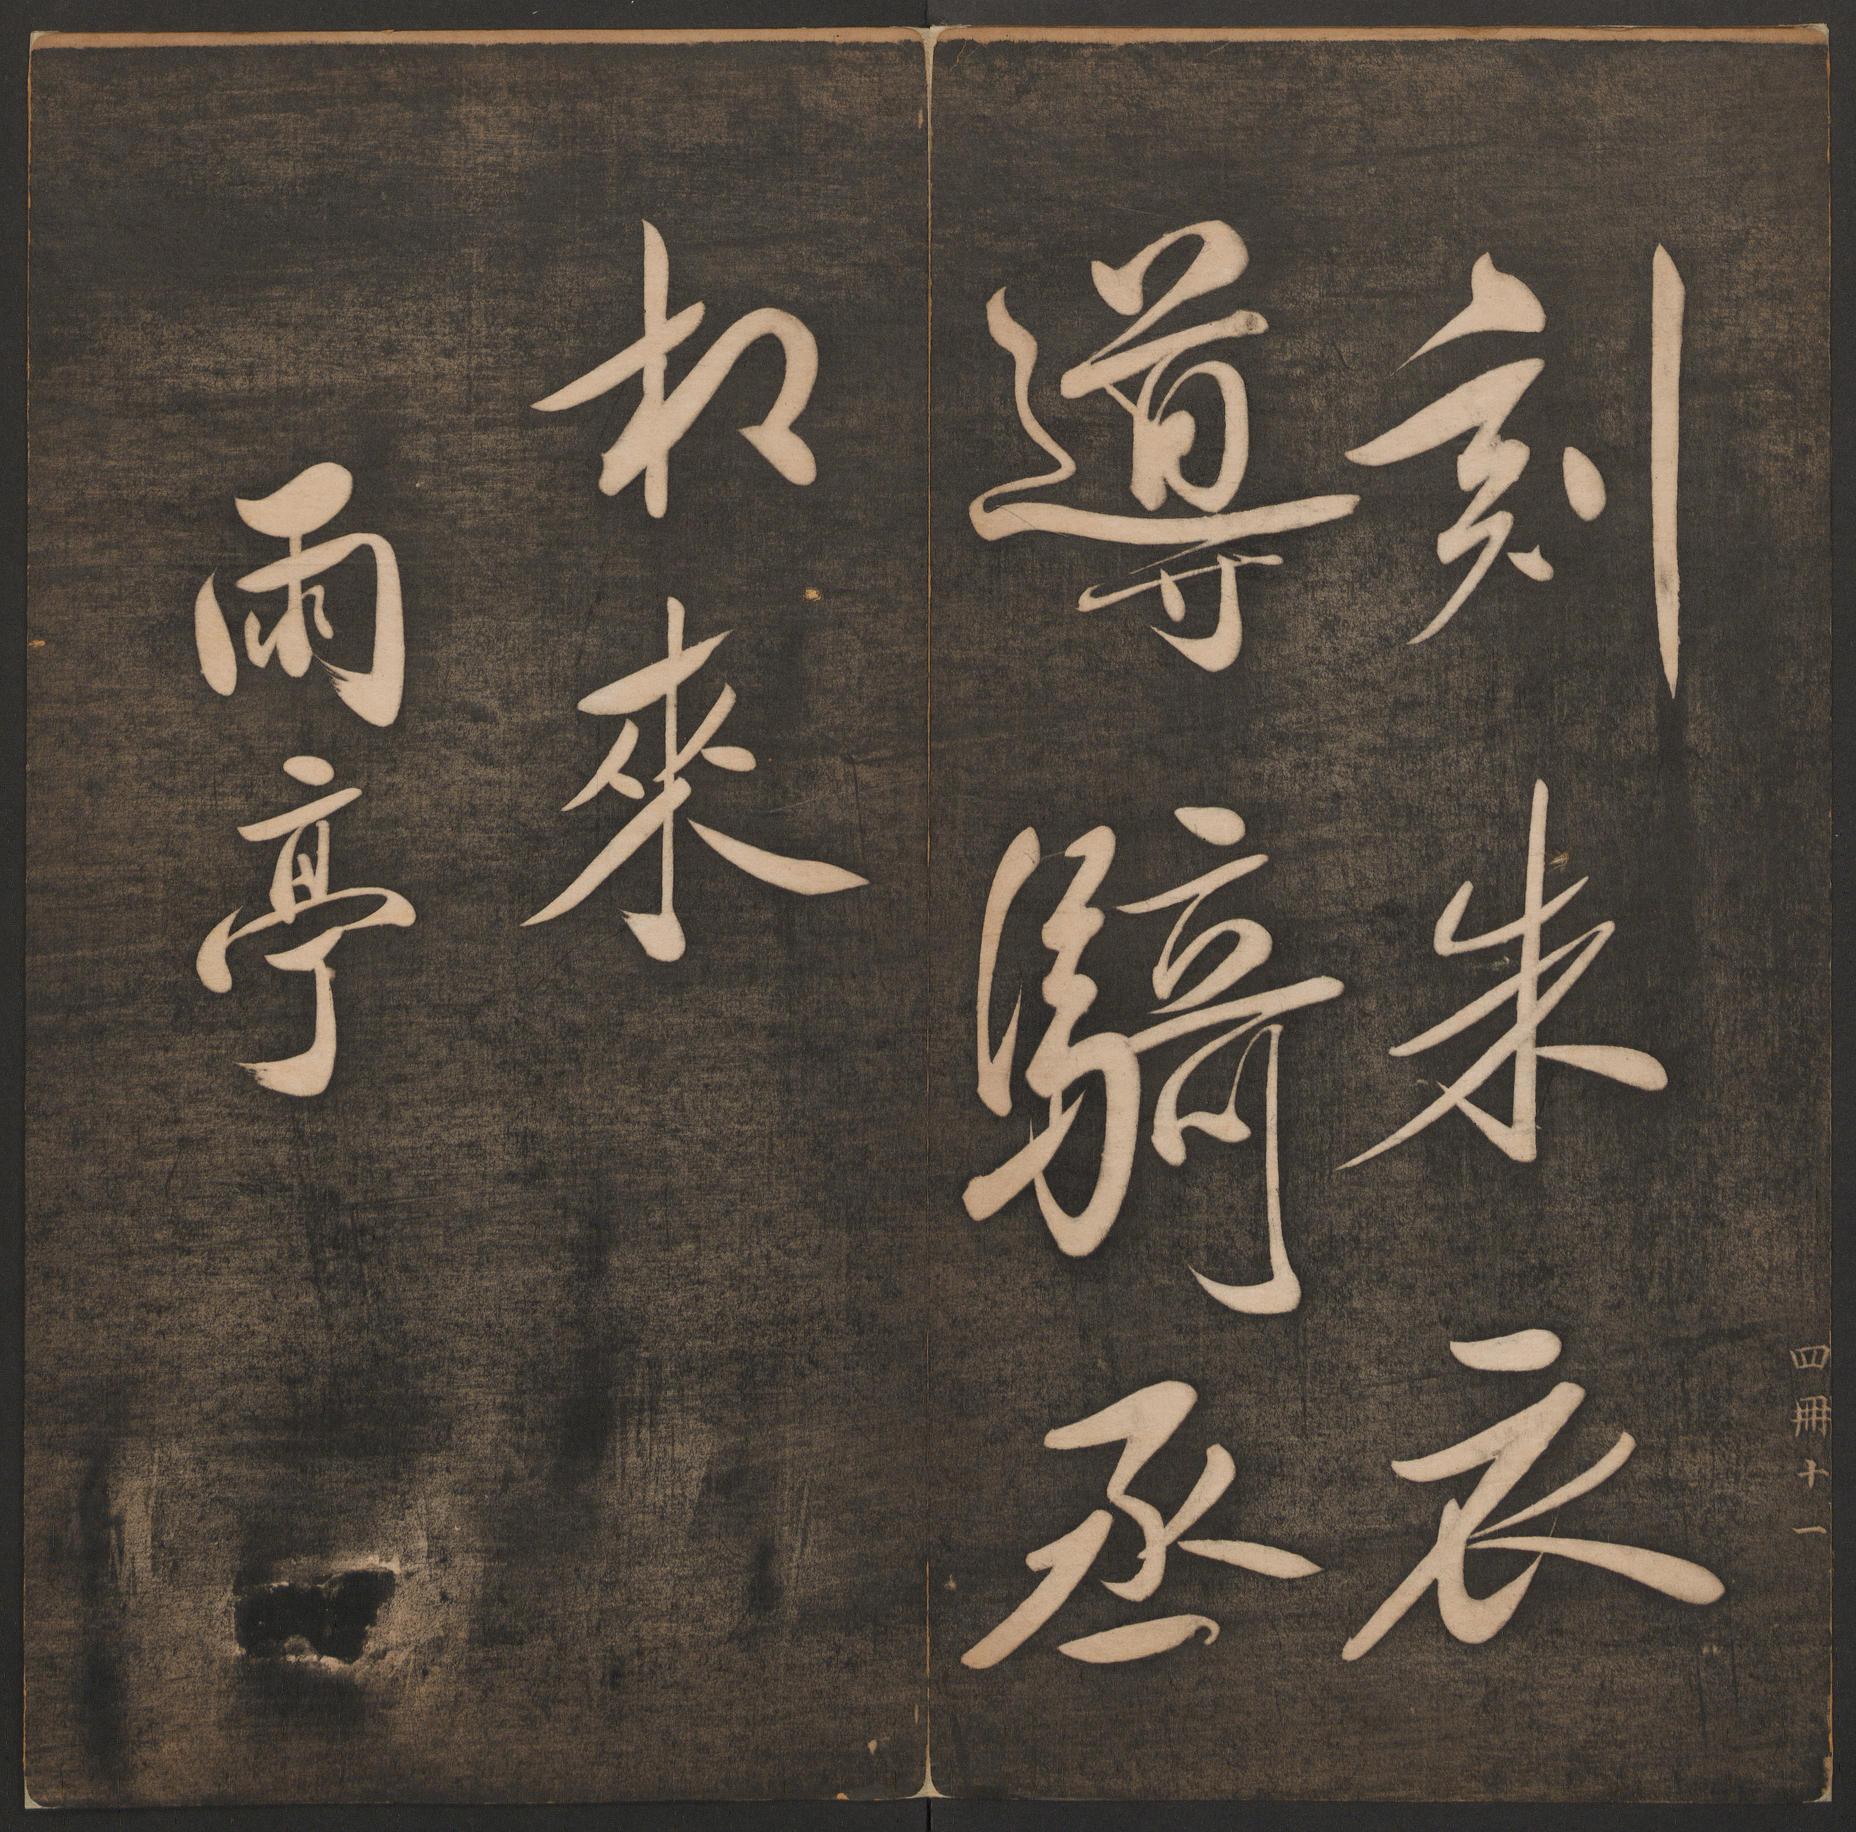 四冊十一
刻朱衣
導騎丞
相來
雨亭